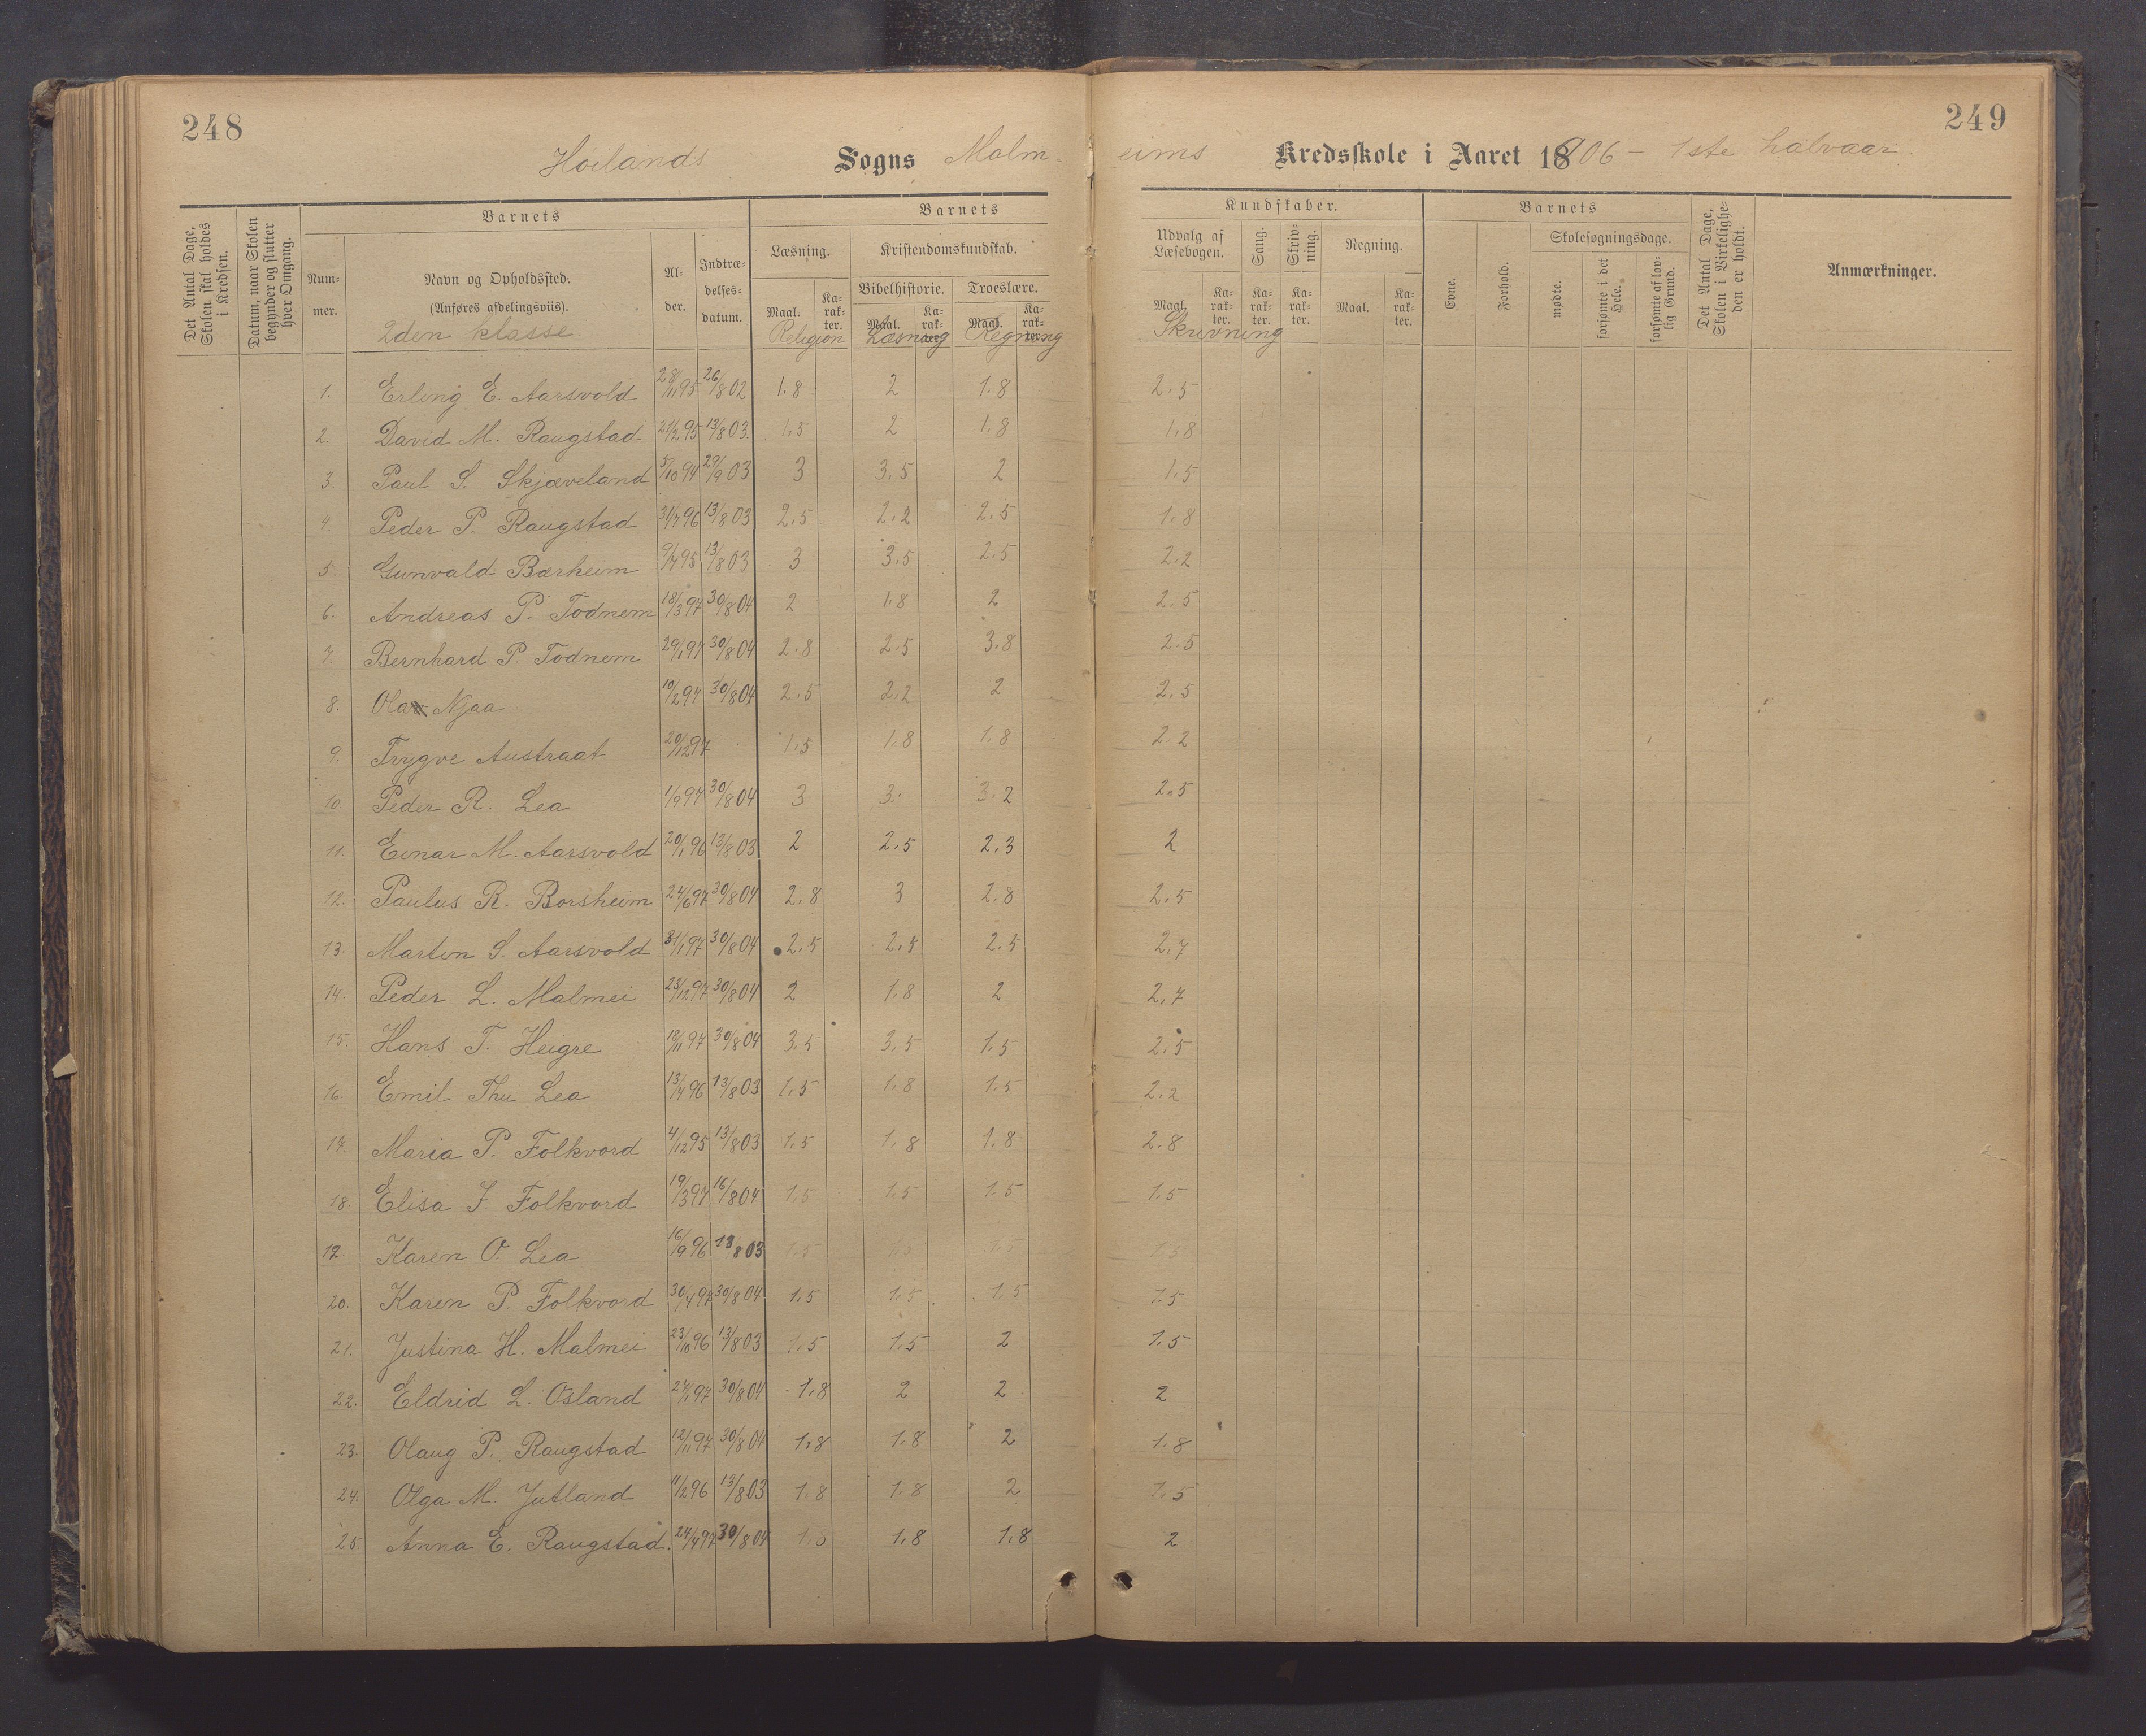 248
249
Høilands Sogns Malmeims Kredsskole i Aaret 1906 - 1ste halvaar.
Det Antal Dage, Skolen skal holdes i Kredsen.
Datum, naar Skolen begynder og slutter hver Omgang.
Barnets
Nummer.
Navn og Opholdssted.
(Anføres afdelingsviis).
2den klasse
Alder.
Indtrædelsesdatum.
Barnets Kundskaber.
Læsning.
Maal. Karakter.
Religion
Kristendomskundskab.
Bibelhistorie.
Maal. Karakter.
Læsning
Troeslære.
Maal. Karakter.
Regning
Udvalg af Læsebogen.
Maal. Karakter.
Skrivning
Sang.
Karakter.
Skrivning.
Karakter.
Regning.
Maal. Karakter.
Barnets
Evne.
Forhold.
Skolesøgningsdage.
mødte.
forsømte i det Hele.
forsømte af lovlig Grund.
Det Antal Dage, Skolen i Virkeligheden er holdt.
Anmærkninger.
1. Erling E. Aarsvold 28/11 95 26/8 02 1.8 2 1.8 2.5
2. David M. Raugstad 21/2 95 13/8 03. 1.5 2 1.8 1.8
3. Paul S. Skjæveland 5/10 94 29/9 03 3 3.5 2 1.5
4. Peder P. Raugstad 3/7 96 13/8 03 2.5 2.2 2.5 1.8
5. Gunvald Bærheim 9/7 95 13/8 03 3 3.5 2.5 2.2
6. Andreas P. Todnem 18/3 97 30/8 04 2 1.8 2 2.5
7. Bernhard P. Todnem 29/1 97 30/8 04 2.8 2.5 3.8 2.5
8. Ola Njaa 10/2 97 30/8 04 2.5 2.2 2 2.5
9. Trygve Austraat 20/12 97 1.5 1.8 1.8 2.2
10. Peder R. Lea 1/9 97 30/8 04 3 3. 3.2 2.5
11. Einar M. Aarsvold 20/1 96 13/8 03 2 2.5 2.3 2
12. Paulus R. Borsheim 24/6 97 30/8 04 2.8 3 2.8 2.5
13. Martin S. Aarsvold 31/1 97 30/8 04 2.5 2.5 2.5 2.7
14. Peder L. Malmei 23/12 97 30/8 04 2 1.8 2 2.7
15. Hans T. Heigre 18/11 97 30/8 04 3.5 3.5 1.5 2.5
16. Emil Thu Lea 13/4 96 13/8 03 1.5 1.8 1.5 2.2
17. Maria P. Folkvord 4/12 95 13/8 03 1.5 1.8 1.8 2.8
18. Elisa J. Folkvord 19/3 97 16/8 04 1.5 1.5 1.5 1.5
19. Karen O. Lea 16/9 96 13 8 03 1.5 1.5 1.5 1.5
20. Karen P. Folkvord 30/4 97 30/8 04 1.5 1.5 1.5 1.5
21. Justina H. Malmei 23/10 96 13/8 03 1.5 1.5 2 1.5
22. Eldrid L. Osland 27/1 97 30/8 04 1.8 2 2 2
23. Olaug P. Raugstad 12/11 97 30/8 04 1.8 1.8 2 1.8
24. Olga M. Jutland 11/2 96 13/8 03 1.8 1.8 2 1.5
25. Anna E. Raugstad. 24/4 97 30/8 04 1.8 1.8 1.8 2